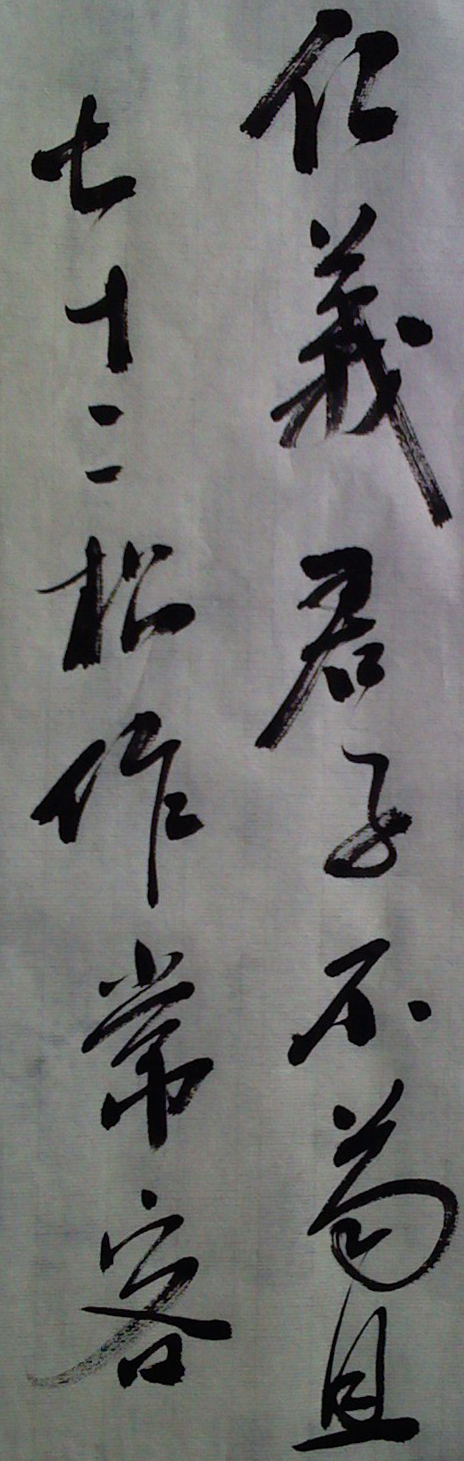 仁義君子不苟且
七十二松作常客